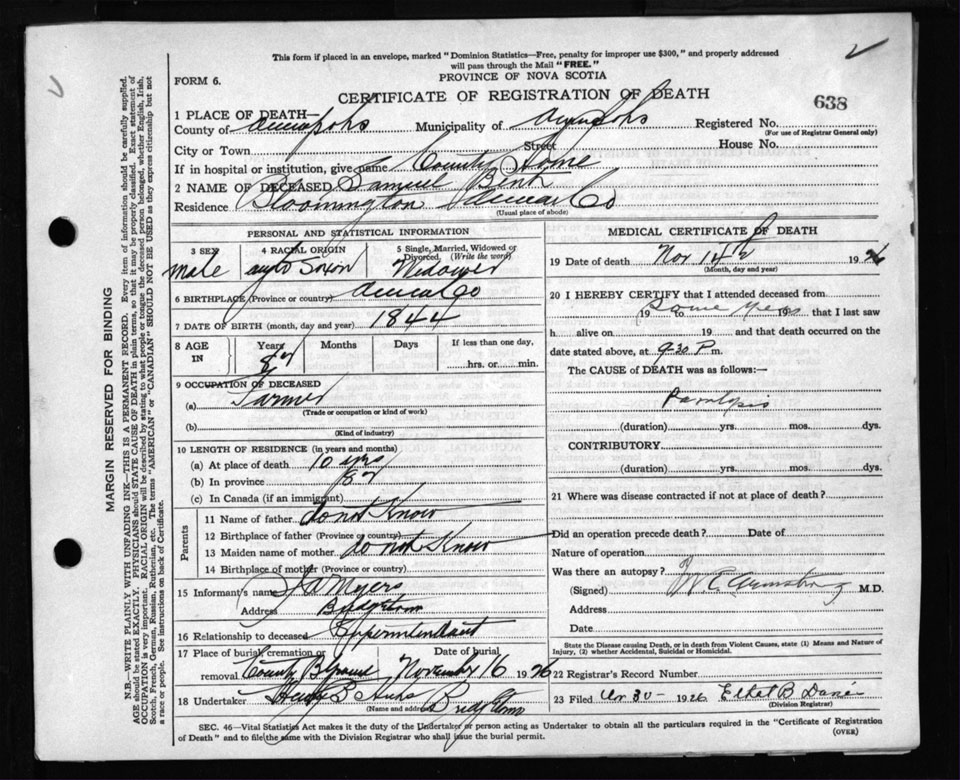 This form if placed in an envelope, marked "Dominion Statistics—Free, penalty for improper use $300," and properly addressed
will pass through the Mail "FREE."
PROVINCE OF NOVA SCOTIA
FORM 6.
CERTIFICATE OF REGISTRATION OF DEATH
638
1 PLACE OF DEATH—
County of Annapolis Municipality of Annapolis Registered No.
(For use of Registrar General only)
City or Town Street House No.
If in hospital or institution, give name County Home
2 NAME OF DECEASED Samuel
Residence Bloomington Co
(Usual place of abode)
PERSONAL AND STATISTICAL INFORMATION
3 SEX 4 RACIAL ORIGIN 5 Single, Married, Widowed or Divorced. (Write the word)
male Saxon Widower
6 BIRTHPLACE (Province or country) Co
7 DATE OF BIRTH (month, day and year) 1844
8 AGE IN Years Months Days If less than one day,
hrs. or min.
9 OCCUPATION OF DECEASED
(a) Farmer
(Trade or occupation or kind of work)
(b)
(Kind of industry)
10 LENGTH OF RESIDENCE (in years and months)
(a) At place of death 10 yrs
(b) In province
(c) In Canada (if an immigrant)
Parents
11 Name of father do not Know
12 Birthplace of father (Province or country)
13 Maiden name of mother do not Know
14 Birthplace of mother (Province or country)
15 Informant's name Myers
Address Bridgetown
16 Relationship to deceased
17 Place of burial, cremation or removal County Date of burial November 16 1926
18 Undertaker
(Name and address)
MEDICAL CERTIFICATE OF DEATH
19 Date of death Nov 14th 192
(Month, day and year)
20 I HEREBY CERTIFY that I attended deceased from
19 to 19 that I last saw
h alive on 19 and that death occurred on the
date stated above, at 9.30 P m.
The CAUSE of DEATH was as follows:—
Paralysis
(duration) yrs. mos. dys.
CONTRIBUTORY
(duration) yrs. mos. dys.
21 Where was disease contracted if not at place of death?
Did an operation precede death? Date of
Nature of operation
Was there an autopsy?
(Signed) Armstrong M.D.
Address
Date
State the Disease causing Death, or in death from Violent Causes, state (1) Means and Nature of
Injury, (2) whether Accidental, Suicidal or Homicidal.
22 Registrar's Record Number
23 Filed 1926 Ethel B
(Division Registrar)
SEC. 46—Vital Statistics Act makes it the duty of the Undertaker or person acting as Undertaker to obtain all the particulars required in the "Certificate of Registration
of Death" and to file the same with the Division Registrar who shall issue the burial permit.
(OVER)
MARGIN RESERVED FOR BINDING
N.B.—WRITE PLAINLY WITH UNFADING INK—THIS IS A PERMANENT RECORD. Every item of information should be carefully supplied.
AGE should be stated EXACTLY. PHYSICIANS should STATE CAUSE OF DEATH in plain terms, so that it may be properly classified. Exact statement of
OCCUPATION is very important. RACIAL ORIGIN will be described by stating to what people or tongue the deceased person belonged, whether English, Irish,
Scotch, French, German, Russian, Ruthenian, etc. The terms "AMERICAN" or "CANADIAN" SHOULD NOT BE USED as they express citizenship but not
a race or people. See instructions on back of Certificate.